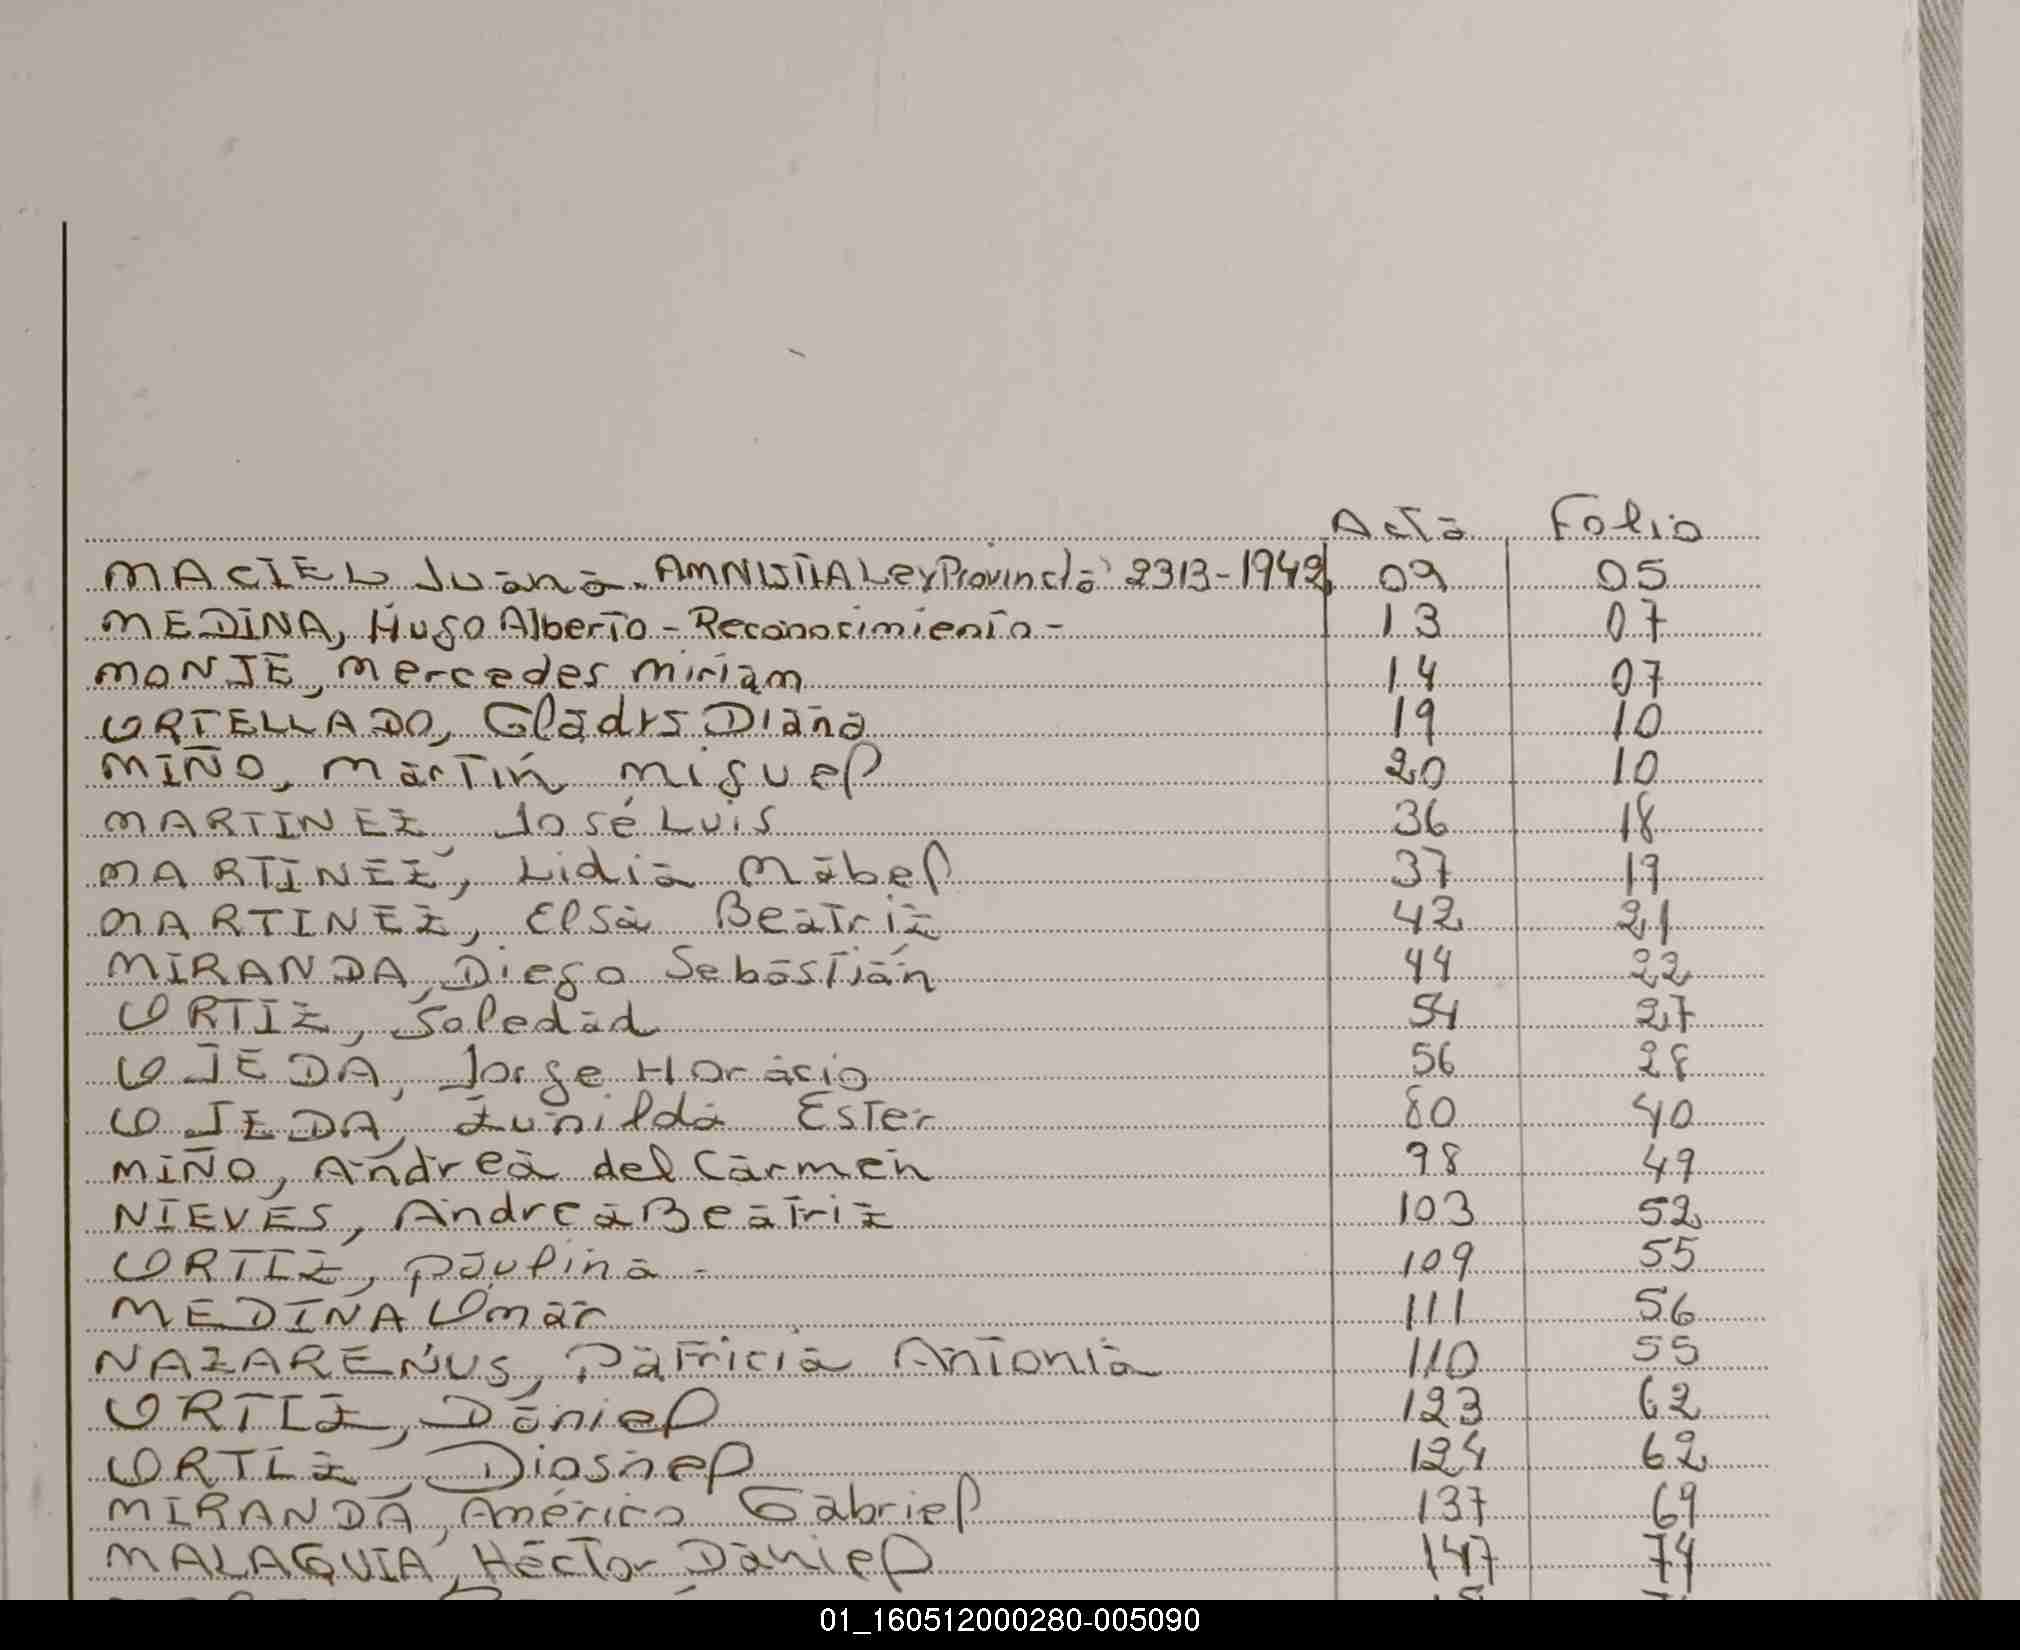 Acta Folio
MACIEL Juana. AMNISTIA Ley Provincia 2313-1942 09 05
MEDINA, Hugo Alberto - Reconocimiento - 13 07
MONJE, Mercedes Miriam 14 07
ORTELLADO, Gladys Diana 19 10
MIÑO, Martín Miguel 20 10
MARTINEZ, José Luis 36 18
MARTINEZ, Lidia Mabel 37 19
MARTINEZ, Elsa Beatriz 42 21
MIRANDA, Diego Sebastián 44 22
ORTIZ, Soledad 54 27
OJEDA, Jorge Horacio 56 28
OJEDA, Zunilda Ester 80 40
MIÑO, Andrea del Carmen 98 49
NIEVES, Andrea Beatriz 103 52
ORTIZ, Paulina - 109 55
MEDINA Omar 111 56
NAZARENUS, Patricia Antonia 110 55
ORTIZ, Daniel 123 62
ORTIZ, Diosnel 124 62
MIRANDA, Américo Gabriel 137 69
MALAQUIA, Héctor Daniel 147 74
01_160512000280-005090